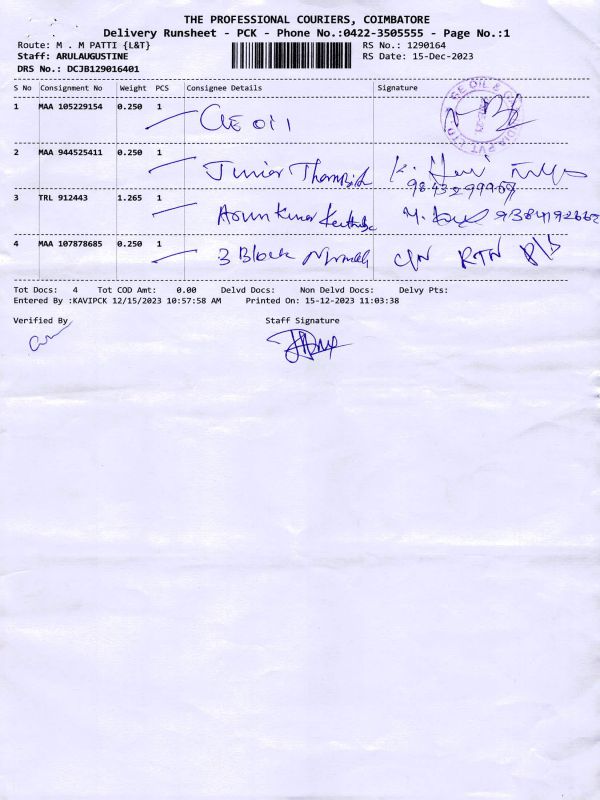 THE PROFESSIONAL COURIERS, COIMBATORE
Delivery Runsheet - PCK - Phone No.:0422-3505555 - Page No.:1
Route: M . M PATTI {L&T} RS No.: 1290164
Staff: ARULAUGUSTINE RS Date: 15-Dec-2023
DRS No.: DCJB129016401
S No Consignment No Weight PCS Consignee Details Signature
1 MAA 105229154 0.250 1 GE Oil
2 MAA 944525411 0.250 1 Junior
3 TRL 912443 1.265 1 Arun Kumar
4 MAA 107878685 0.250 1 3 Block C/N RTN
Tot Docs: 4 Tot COD Amt: 0.00 Delvd Docs: Non Delvd Docs: Delvy Pts:
Entered By :KAVIPCK 12/15/2023 10:57:58 AM Printed On: 15-12-2023 11:03:38
Verified By Staff Signature